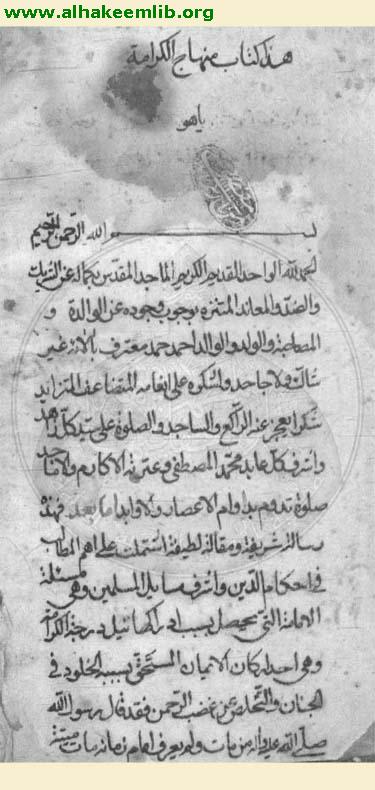 www.alhakeemlib.org
هذا كتاب منهاج الكرامة
ياهو
بسم الله الرحمن الرحيم
الحمد لله الواحد القديم الكريم الماجد المقدس بكماله عن الشريك
والضد والمعاند المتنزه بوجوب وجوده عن الوالدة و
الصاحبة والولد والوالد احمده حمد معترف بآلائه غير
شاك ولا جاحد واشكره على انعامه المتضاعف المتزايد
شكرا يعجز عنه الراكع والساجد والصلوة على سيد كل زاهد
واشرف كل عابد محمد المصطفى وعترته الاكارم والاماجد
صلوة تدوم بدوام الاعصار والاوابد اما بعد فهذه
رسالة شريفة ومقالة لطيفة اشتملت على اهم المطالب
في احكام الدين واشرف مسايل المسلمين وهي مسئلة
الامامة التي يحصل بسبب ادراكها نيل درجة الكرامة
وهي احد اركان الايمان المستحق بسببه الخلود في
الجنان والتخلص من غضب الرحمن فقد قال رسول الله
صلى الله عليه واله من مات ولم يعرف امام زمانه مات ميتة